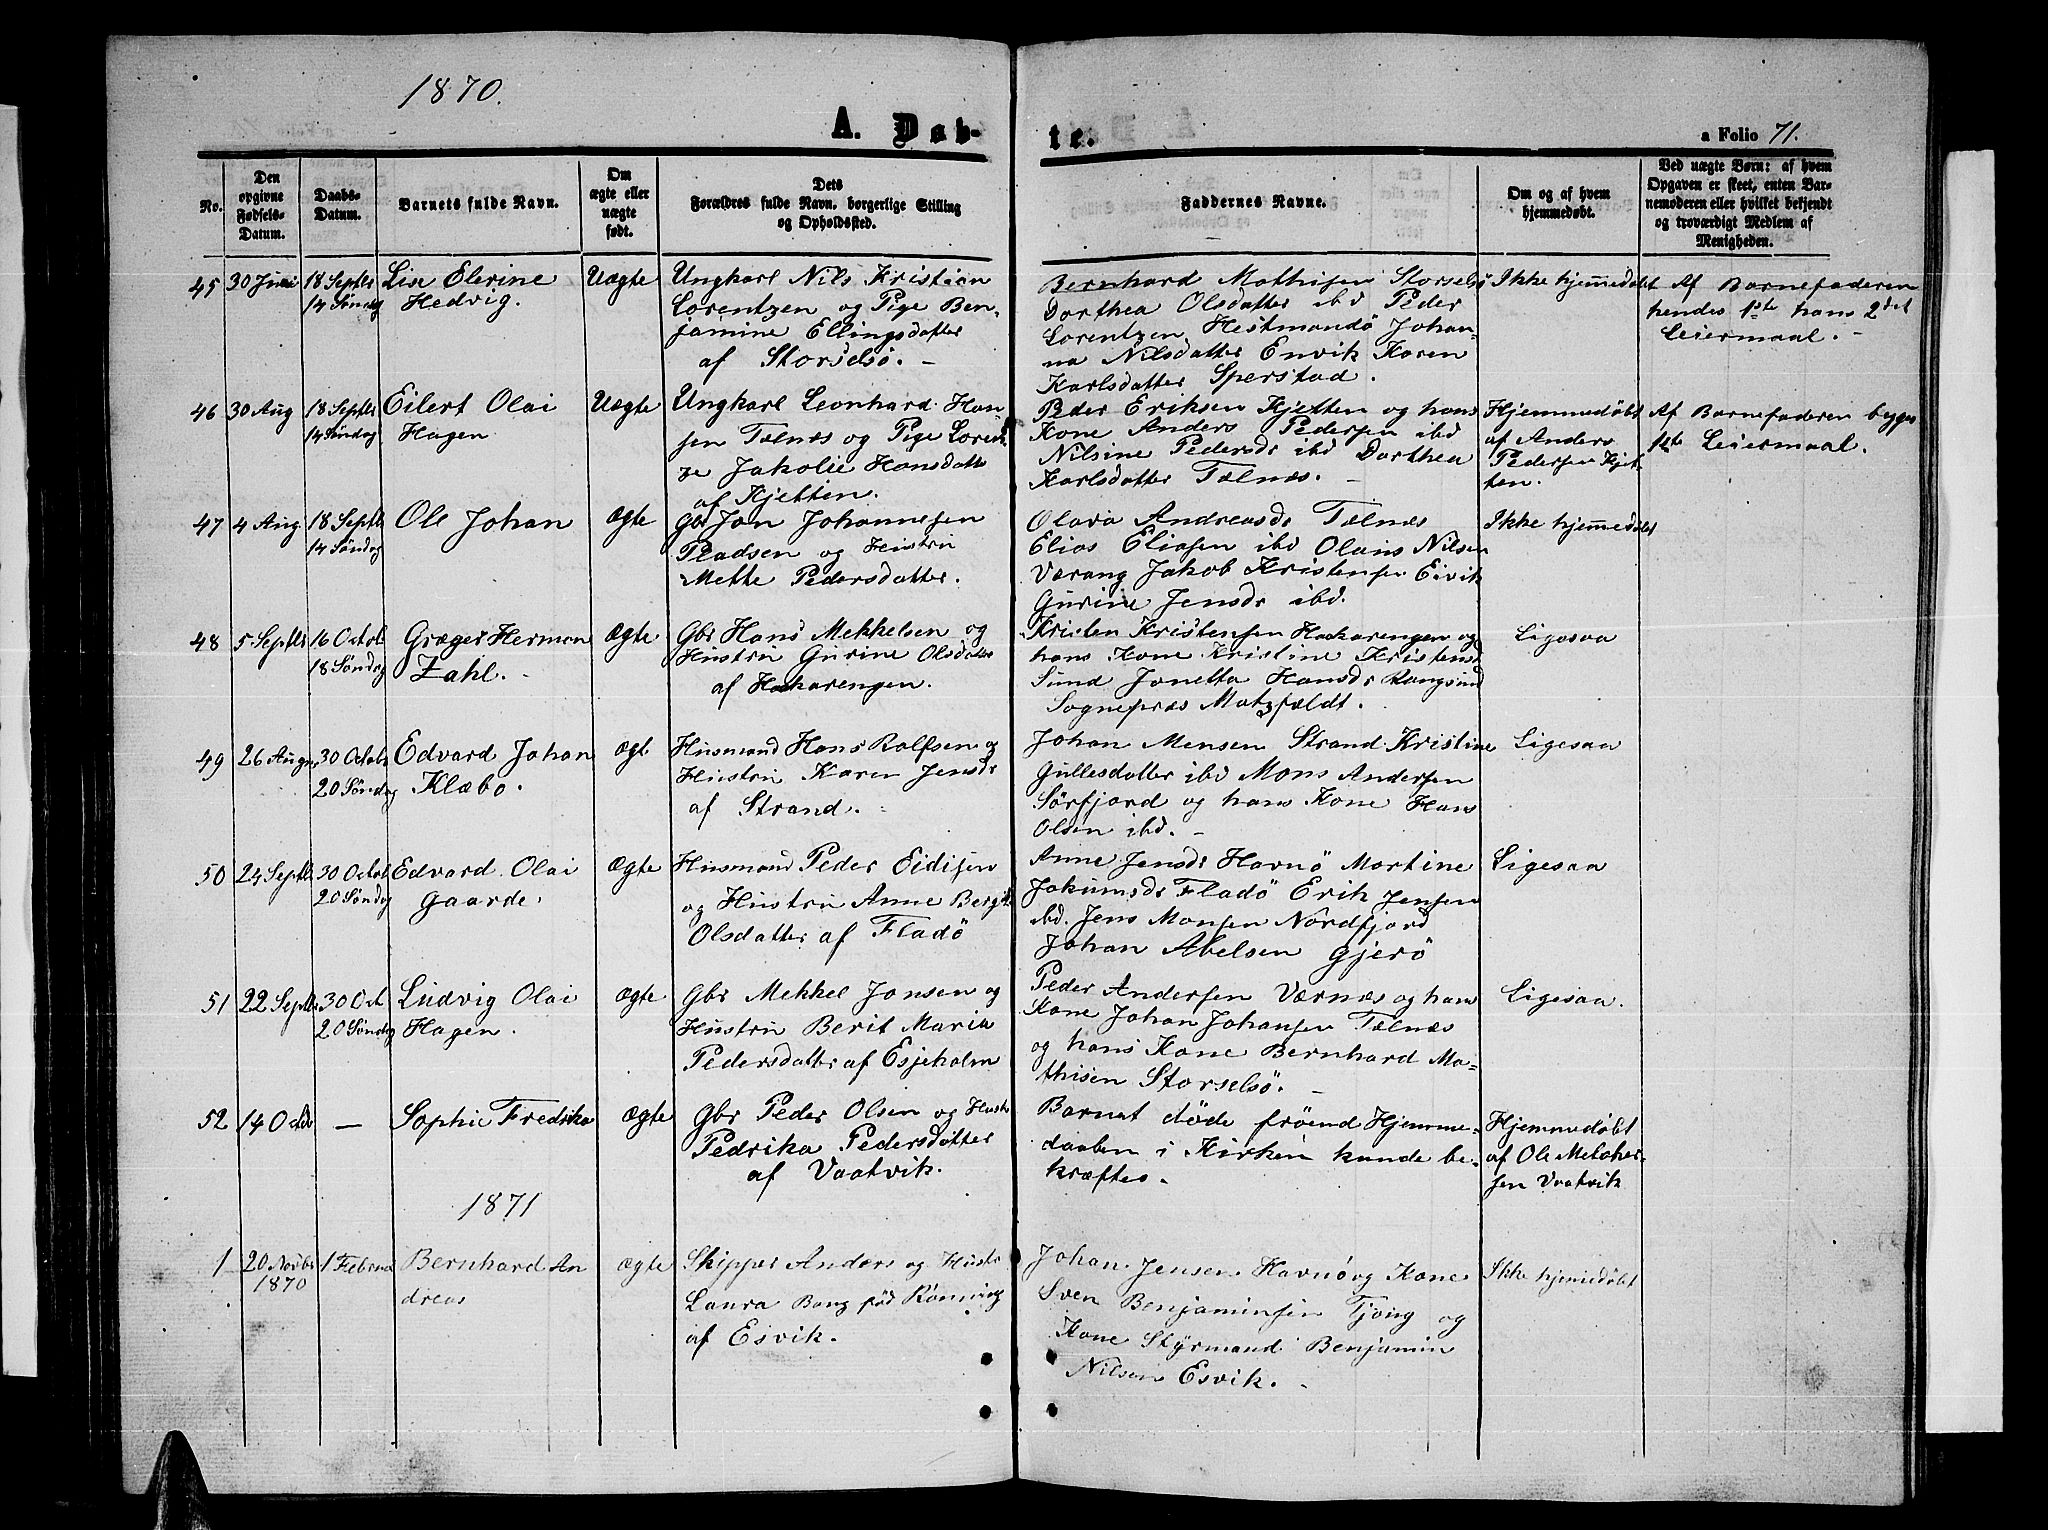 1870.
A. Døb-
te.
a Folio 71.
No.
Den
opgivne
Fødsels-
Datum.
Daabs-
Datum.
Barnets fulde Navn.
Om
ægte eller
uægte
født.
Dets
Forældres fulde Navn, borgerlige Stilling
og Opholdssted.
Faddernes Navne.
Om og af hvem
hjemmedøbt.
Ved uægte Børn: af hvem
Opgaven er skeet, enten Bar-
nemoderen eller hvilket bekjendt
og troværdigt Medlem af
Menigheden.
45
30 Juni
18 Septbr
14 Søndag
Lise Elerine
Hedvig.
Uægte
Ungkarl Nils Kristian
Lorentzen og Pige Ben-
jamine Ellingsdatter
af Storselsö. –
Bernhard Mathisen Storselsö
Dorthea Olsdatter ibd Peder
Lorentzen Hestmandö Johan-
na Nilsdatter Envik Karen
Karlsdatter Sperstad.
Ikke hjemmedøbt
Af Barnefaderen
hendes 1ste hans 2det
Leiermaal. –
46
30 Aug
18 Septbr
14 Søndag
Eilert Olai
Hagen
Uægte
Ungkarl Leonhard Han-
sen Tælnæs og Pige Loren-
ze Jakolie Hansdatter
af Kjetten.
Peder Eriksen Kjetten og hans
Kone Anders Pedersen ibd
Nilsine Pedersdr ibd Dorthea
Karlsdatter Tælnæs. –
Hjemmedøbt
af Anders
Pedersen Kjet-
ten.
Af Barnefaderen begges
1ste Leiermaal.
47
4 Aug
18 Septbr
14 Søndag
Ole Johan
Ægte
Gbr Jon Johannesen
Pladsen og Hustru
Mette Pedersdatter.
Olava Andreasdr Tælnæs
Elias Eliasen ibd Olaus Nilsen
Værang Jakob Kristensen Eivik
Gurine Jensdr ibd.
Ikke hjemmedøbt
48
5 Septbr
16 Octob
18 Søndag
Græger Herman
Zahl. –
Ægte
Gbr Hans Mekkelsen og
Hustru Gurine Olsdatter
af Haakarengen.
Kristen Kristensen Haakarengen og
hans Kone Kristine Kristensd
Sund Jonetta Hansdr Rangsund
Sognepræs Matzfældt.
Ligesaa
49
26 Augu
30 Octob
20 Søndag
Edvard Johan
Klæbo.
Ægt
Husmand Hans Rolfsen og
Hustru Karen Jensdr
af Strand.
Johan Mensen Strand Kristine
Gullesdatter ibd Mons Andersen
Sörfjord og hans Kone Hans
Olsen ibd. –
Ligesaa
50
24 Septbr
30 Octob
20 Søndag
Edvard Olai
Gaarde.
Ægte
Husmand Peder Eidisen
og Hustru Anne Bergit
Olsdatter af Fladö
Anne Jensdr Havnö Martine
Jokumsdr Fladö Erik Jensen
ibd. Jens Monsen Nordfjord
Johan Abelsen Gjerö
Ligesaa
51
22 Septbr
30 Oct
20 Søndag
Ludvig Olai
Hagen.
Ægte
Gbr Mekkel Jonsen og
Hustru Berit Maria
Pedersdatter af Esjeholm
Peder Andersen Værnæs og hans
Kone Johan Johansen Tælnæs
og hans Kone Bernhard Ma-
thisen Storselsö. –
Ligesaa.
52
14 Octb
—
Sophie Fredrika
Ægte
Gbr Peder Olsen og Hustr
Pedrika Pedersdatter
af Vaatvik.
Barnet døde frøend Hjemme-
daaben i Kirken kunde be-
kræftes.
Hjemmedøbt
af Ole Melcher-
sen Vaatvik
1871
1
20 Novbr
1870
1 Februar
Bernhard An
dreas
Ægte
Skipper Anders og Hustr
Laura Bang fød Rönning
af Esvik.
Johan Jensen Havnö og Kone
Sven Benjaminsen Tjong og
Kone Styrmand Benjamin
Nilsen Esvik. –
Ikke hjemmedøbt